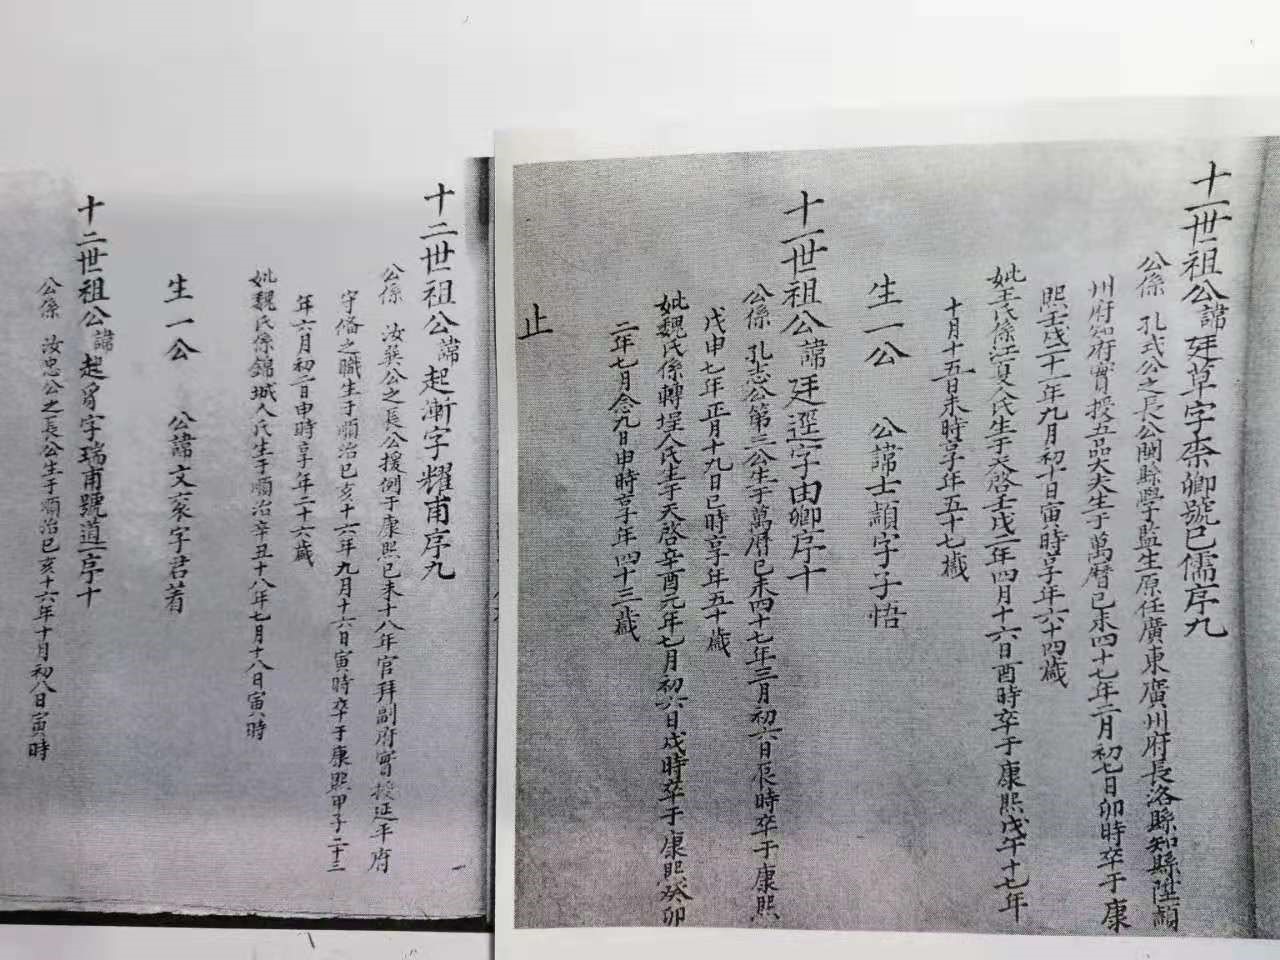 十一世祖公諱廷草字柰卿號巳儒序九
公係 孔式公之長公閩縣學監生原任廣東廣州府長洛縣知縣陞
川府知府實授五品大夫生于萬曆己未四十七年二月初七日卯時卒于康
熙壬戌二十一年九月初十日寅時享年六十四歲
妣王氏係江夏人氏生于天啓壬戌二年四月十六日酉時卒于康熙戊午十七年
十月十五日未時享年五十七歲
生一公 公諱士顓字子悟
十一世祖公諱廷選字由卿序十
公係 孔志公第三公生于萬曆己未四十七年三月初六日辰時卒于康熙
戊申七年正月十九日巳時享年五十歲
妣魏氏係轉埕人氏生于天啓辛酉元年七月初六日戌時卒于康熙癸卯
二年七月念九日申時享年四十三歲
止
十二世祖公諱起漸字耀甫序九
公係 汝巽公之長公援例于康熙己未十八年官拜副府實授延平府
守備之職生于順治己亥十六年九月十六日寅時卒于康熙甲子二十三
年六月初二日申時享年二十六歲
妣魏氏係錦城人氏生于順治辛丑十八年七月十八日寅時
生一公 公諱文家字君著
十二世祖公諱起字瑞甫號道一序十
公係 汝忠公之長公生于順治己亥十六年十月初八日寅時